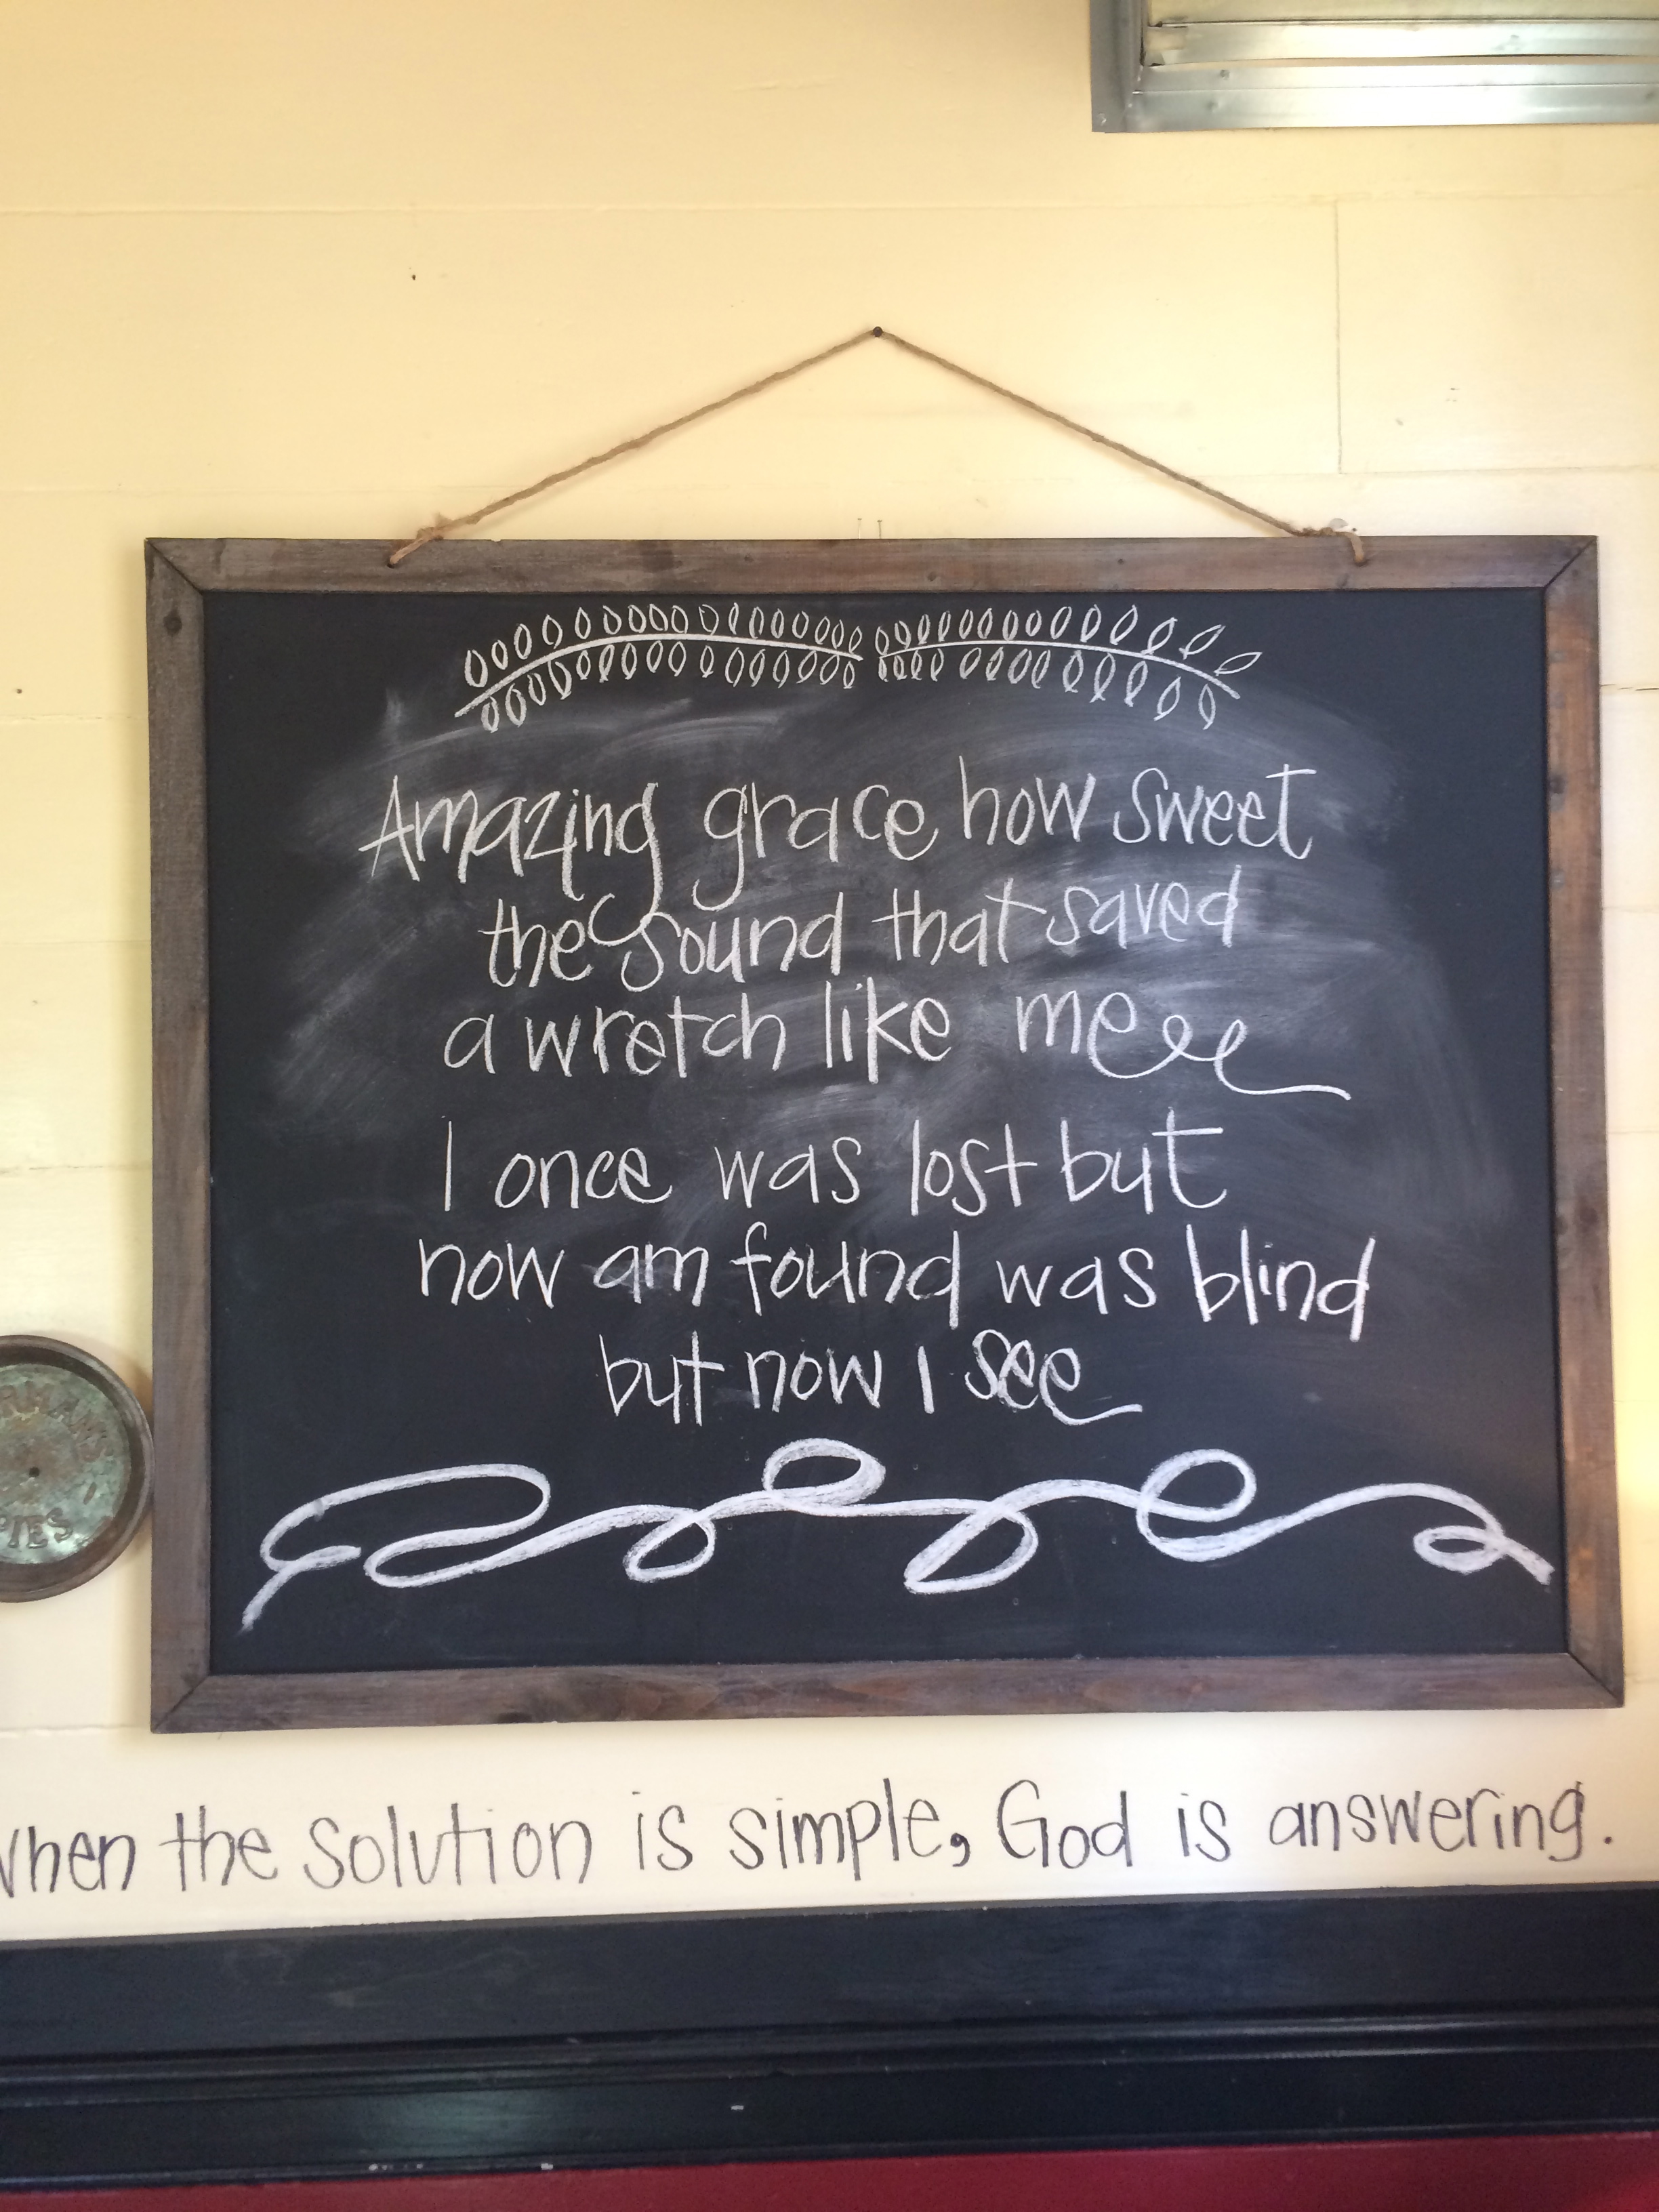 Amazing grace how sweet
the sound that saved
a wretch like me
I once was lost but
now am found was blind
but now I see
PIES
when the solution is simple, God is answering.